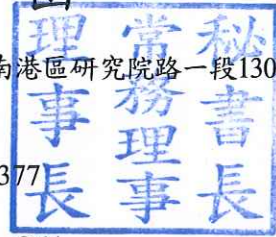 南港區研究院路一段130
377
秘書長
常務理事
理事長